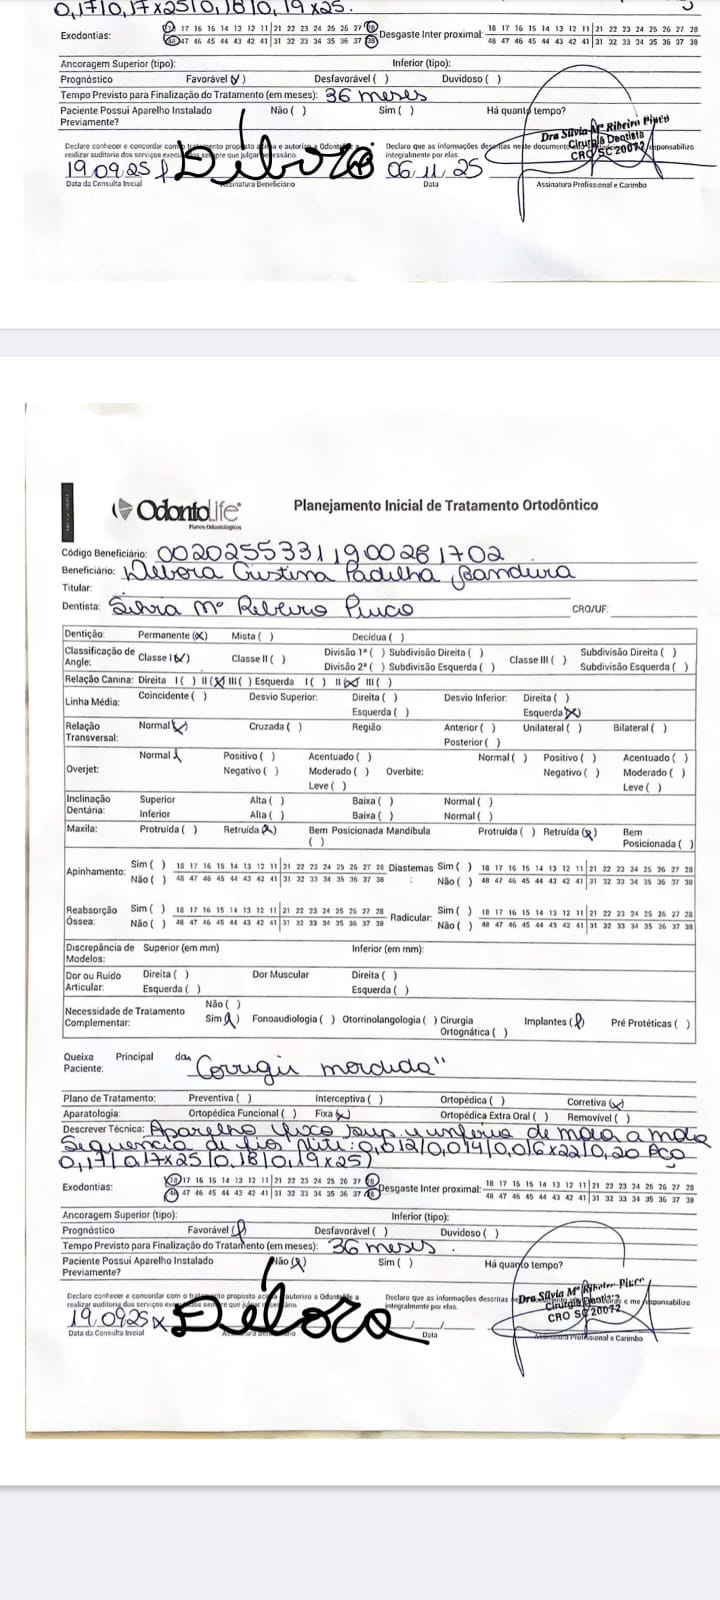 0,17|0,17x25|0,18|0,19x25.
Exodontias: 18 17 16 15 14 13 12 11 21 22 23 24 25 26 27 28 Desgaste Inter proximal: 18 17 16 15 14 13 12 11 21 22 23 24 25 26 27 28
48 47 46 45 44 43 42 41 31 32 33 34 35 36 37 38 48 47 46 45 44 43 42 41 31 32 33 34 35 36 37 38
Ancoragem Superior (tipo): Inferior (tipo):
Prognóstico Favorável (x) Desfavorável ( ) Duvidoso ( )
Tempo Previsto para Finalização do Tratamento (em meses): 36 meses
Paciente Possui Aparelho Instalado Não ( ) Sim ( ) Há quanto tempo?
Previamente?
Declaro conhecer e concordar com o tratamento proposto e autorizo a Declaro que as informações descritas neste documento
realizar auditoria dos serviços sempre que julgar necessário. integralmente por elas.
Dra Silvia Mª Ribeiro Pinco
Cirurgiã Dentista
CRO SC 20072
19 09 25 Débora 06 11 25
Data da Consulta Inicial Assinatura Beneficiário Data Assinatura Profissional e Carimbo
OdontoLife Planejamento Inicial de Tratamento Ortodôntico
Planos Odontológicos
Código Beneficiário: 00202553311900281702
Beneficiário: Débora Cristina Padilha Bandura
Titular:
Dentista: Silvia Mª Ribeiro Pinco CRO/UF:
Dentição: Permanente (x) Mista ( ) Decídua ( )
Classificação de Angle: Classe I (x) Classe II ( ) Divisão 1ª ( ) Subdivisão Direita ( ) Classe III ( ) Subdivisão Direita ( )
Divisão 2ª ( ) Subdivisão Esquerda ( ) Subdivisão Esquerda ( )
Relação Canina: Direita I ( ) II (x) III ( ) Esquerda I ( ) II (x) III ( )
Linha Média: Coincidente ( ) Desvio Superior: Direita ( ) Desvio Inferior: Direita ( )
Esquerda ( ) Esquerda (x)
Relação Transversal: Normal (x) Cruzada ( ) Região Anterior ( ) Unilateral ( ) Bilateral ( )
Posterior ( )
Overjet: Normal (x) Positivo ( ) Acentuado ( ) Normal ( ) Positivo ( ) Acentuado ( )
Negativo ( ) Moderado ( ) Overbite: Negativo ( ) Moderado ( )
Leve ( ) Leve ( )
Inclinação Dentária: Superior Alta ( ) Baixa ( ) Normal ( )
Inferior Alta ( ) Baixa ( ) Normal ( )
Maxila: Protruída ( ) Retruída (x) Bem Posicionada ( ) Mandíbula Protruída ( ) Retruída (x) Bem Posicionada ( )
Apinhamento: Sim ( ) 18 17 16 15 14 13 12 11 21 22 23 24 25 26 27 28 Diastemas: Sim ( ) 18 17 16 15 14 13 12 11 21 22 23 24 25 26 27 28
Não ( ) 48 47 46 45 44 43 42 41 31 32 33 34 35 36 37 38 Não ( ) 48 47 46 45 44 43 42 41 31 32 33 34 35 36 37 38
Reabsorção Óssea: Sim ( ) 18 17 16 15 14 13 12 11 21 22 23 24 25 26 27 28 Radicular: Sim ( ) 18 17 16 15 14 13 12 11 21 22 23 24 25 26 27 28
Não ( ) 48 47 46 45 44 43 42 41 31 32 33 34 35 36 37 38 Não ( ) 48 47 46 45 44 43 42 41 31 32 33 34 35 36 37 38
Discrepância de Modelos: Superior (em mm) Inferior (em mm):
Dor ou Ruído Articular: Direita ( ) Dor Muscular Direita ( )
Esquerda ( ) Esquerda ( )
Necessidade de Tratamento Complementar: Não ( )
Sim (x) Fonoaudiologia ( ) Otorrinolangologia ( ) Cirurgia Ortognática ( ) Implantes (x) Pré Protéticas ( )
Queixa Principal da Paciente: Corrigir mordida"
Plano de Tratamento: Preventiva ( ) Interceptiva ( ) Ortopédica ( ) Corretiva (x)
Aparatologia: Ortopédica Funcional ( ) Fixa (x) Ortopédica Extra Oral ( ) Removível ( )
Descrever Técnica: Aparelho fixo sup e inferior de mola a mola
Sequencia de fio Niti: 0,012|0,014|0,016x22|0,20 Aço
0,17|0,17x25|0,18|0,19x25)
Exodontias: 18 17 16 15 14 13 12 11 21 22 23 24 25 26 27 28 Desgaste Inter proximal: 18 17 16 15 14 13 12 11 21 22 23 24 25 26 27 28
48 47 46 45 44 43 42 41 31 32 33 34 35 36 37 38 48 47 46 45 44 43 42 41 31 32 33 34 35 36 37 38
Ancoragem Superior (tipo): Inferior (tipo):
Prognóstico Favorável (x) Desfavorável ( ) Duvidoso ( )
Tempo Previsto para Finalização do Tratamento (em meses): 36 meses.
Paciente Possui Aparelho Instalado Não (x) Sim ( ) Há quanto tempo?
Previamente?
Declaro conhecer e concordar com o tratamento proposto autorizo a Declaro que as informações descritas e me responsabilizo
realizar auditoria dos serviços sempre que julgar necessário. integralmente por elas.
Dra. Silvia Mª Ribeiro Pinco
Cirurgiã Dentista
CRO SC 20072
19 09 25 x Débora __/__/__
Data da Consulta Inicial Data Assinatura Profissional e Carimbo